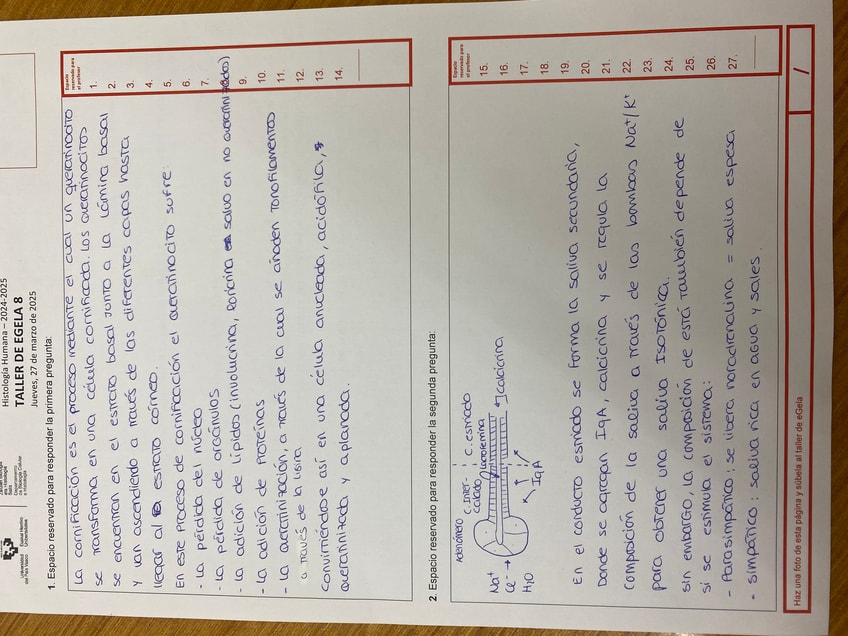 Histología Humana – 2024-2025
TALLER DE EGELA 8
Jueves, 27 de marzo de 2025
1. Espacio reservado para responder la primera pregunta:
La cornificación es el proceso mediante el cual un queratinocito
se transforma en una célula cornificada. Los queratinocitos
se encuentran en el estrato basal junto a la lámina basal
y van ascendiendo a través de las diferentes capas hasta
llegar al estrato córneo.
En este proceso de cornificación el queratinocito sufre:
- La pérdida del núcleo
- La pérdida de orgánulos
- La adición de lípidos (involucrina, loricrina salvo en no queratinizados)
- La adición de proteínas
- La queratinización, a través de la cual se añaden tonofilamentos
a través de la
convirtiéndose así en una célula anucleada, acidófila,
queratinizada y aplanada.
Espacio reservado para el profesor
1.
2.
3.
4.
5.
6.
7.
9.
10.
11.
12.
13.
14.
2. Espacio reservado para responder la segunda pregunta:
Adenómero
C. inter-
calado
C. estriado
lactoferrina
Na⁺
Cl⁻
H₂O
IgA
calcicrina
En el conducto estriado se forma la saliva secundaria,
Donde se agregan IgA, calcicrina y se regula la
composición de la saliva a través de las bombas Na⁺/K⁺
para obtener una saliva Isotónica.
sin embargo, la composición de está también depende de
si se estimula el sistema:
- Parasimpático: se libera noradrenalina = saliva espesa
- simpático: saliva rica en agua y sales.
Espacio reservado para el profesor
15.
16.
17.
18.
19.
20.
21.
22.
23.
24.
25.
26.
27.
Haz una foto de esta página y súbela al taller de eGela
/